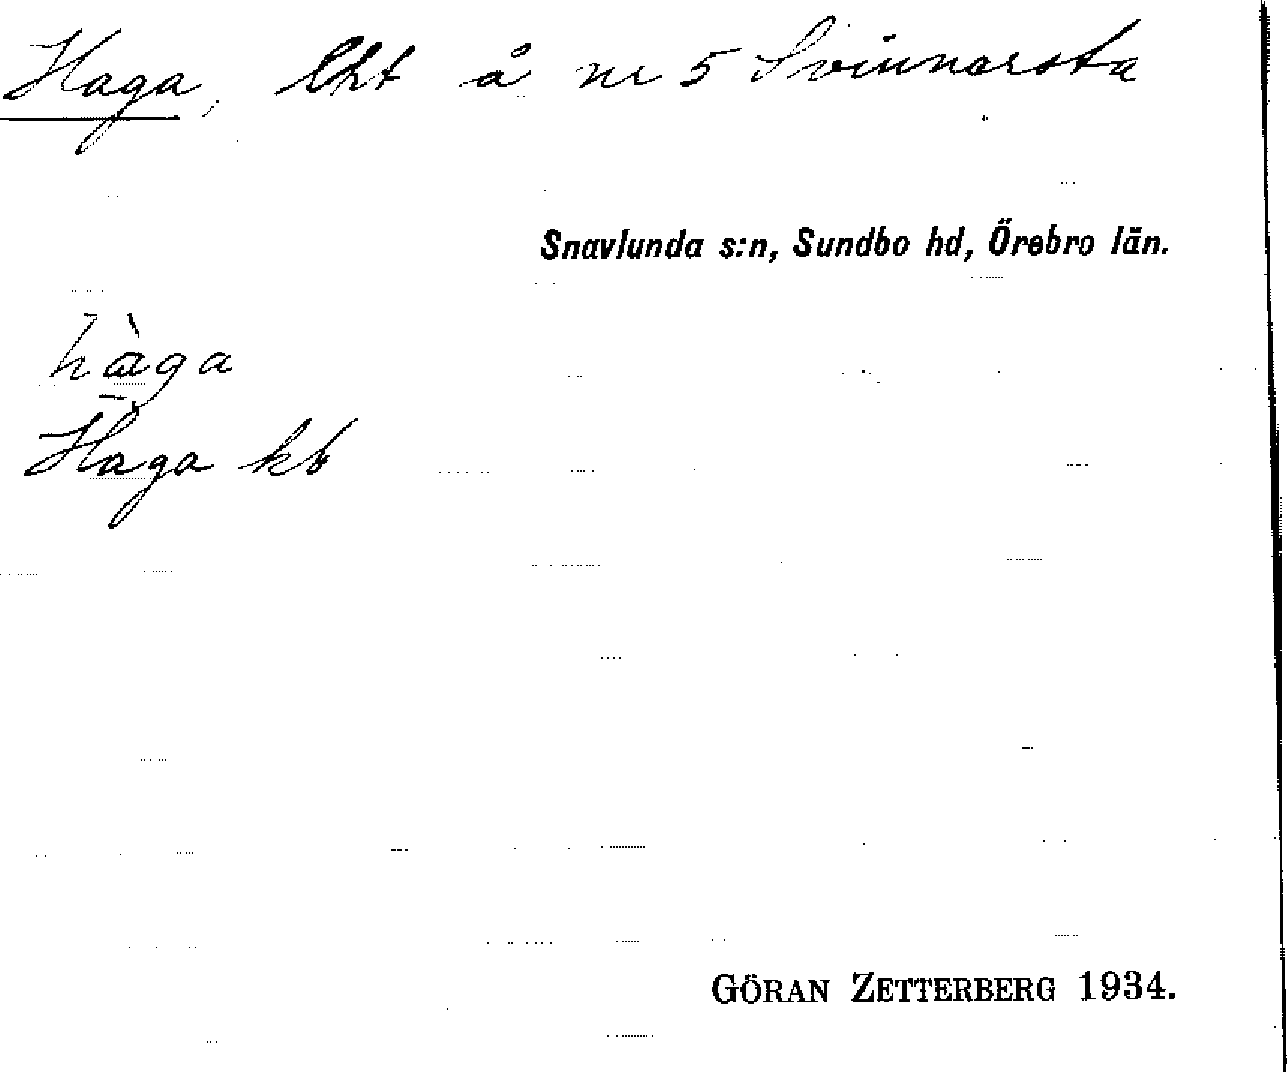 Haga, lht å nr 5 Svinnarsta
Snavlunda s:n, Sundbo hd, Örebro län.
hàga
Haga kb
GÖRAN ZETTERBERG 1934.